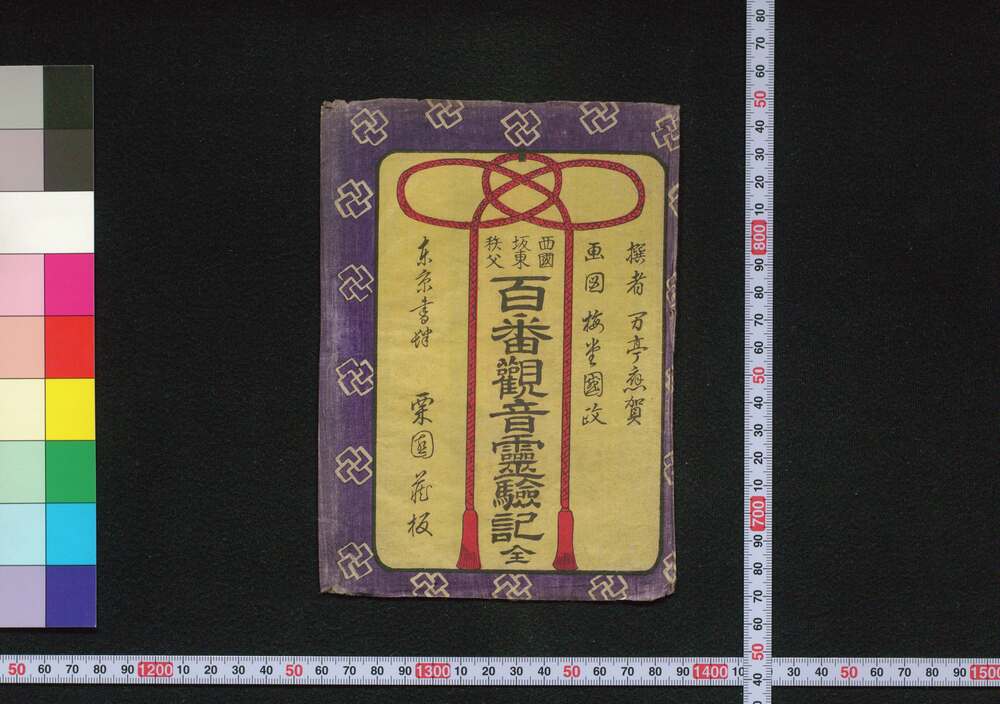 撰者 万亭應賀
画図 梅堂國政
西國
坂東
秩父
百番觀音靈驗記 全
東京書肆 栗園蔵板
80 70 60 50 40 30 20 10 800 90 80 70 60 50 40 30 20 10 700 90 80 70 60 50 40
50 60 70 80 90 1200 10 20 30 40 50 60 70 80 90 1300 10 20 30 40 50 60 70 80 90 1400 10 30 40 50 60 70 80 90 1500